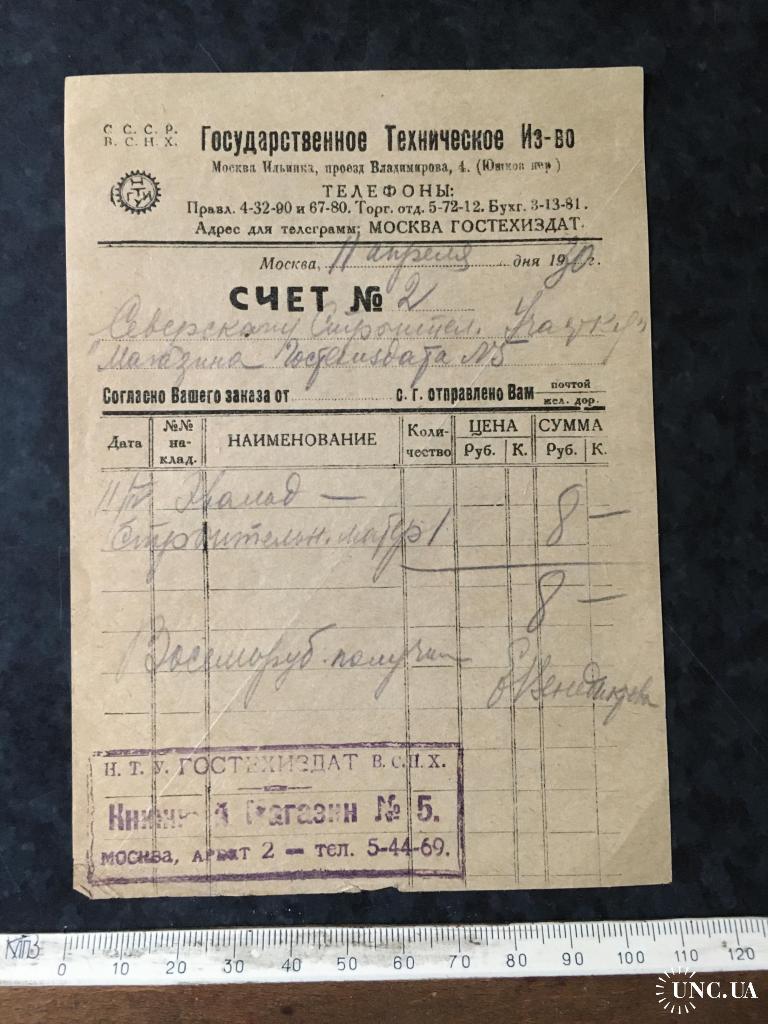 С. С. С. Р.
В. С. Н. Х.
Государственное Техническое Из-во
Москва Ильинка, проезд Владимирова, 4. (Юшков пер)
НТУ
ТЕЛЕФОНЫ:
Правл. 4-32-90 и 67-80. Торг. отд. 5-72-12. Бухг. 3-13-81.
Адрес для телеграмм: МОСКВА ГОСТЕХИЗДАТ
Москва, 11 апреля дня 1930 г.
СЧЕТ № 2
Северскому Строител.
Магазина Гостехиздата №5
Согласно Вашего заказа от с. г. отправлено Вам почтой жел. дор.
Дата №№ на-клад. НАИМЕНОВАНИЕ Коли-чество ЦЕНА Руб. К. СУММА Руб. К.
11/IV —
Строительн. матер 1 8 —
8 —
Восемь руб. получил
Н. Т. У. ГОСТЕХИЗДАТ В. С. Н. Х.
Книжный Магазин № 5.
МОСКВА, АРБАТ 2 — тел. 5-44-69.
0 10 20 30 40 50 60 70 80 90 100 110 120
UNC.UA